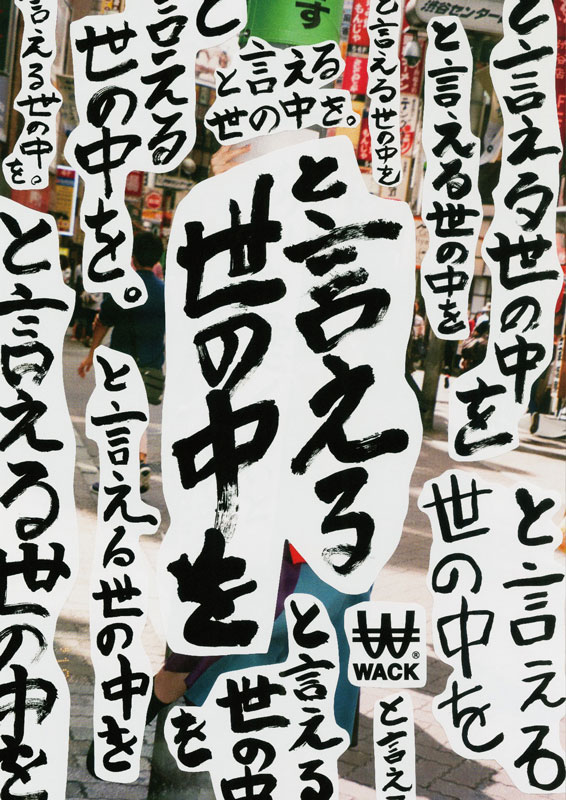 と言える
世の中を
と言える世の中を。
と言える
世の中を。
と言える
世の中を。
と言える世の中を
と言える世の中を
と言える世の中を
と言える世の中を
と言える世の中を
と言える
世の中を
と言える
世の中を
と言え
WACK
®
す
渋谷センター
もんじゃ